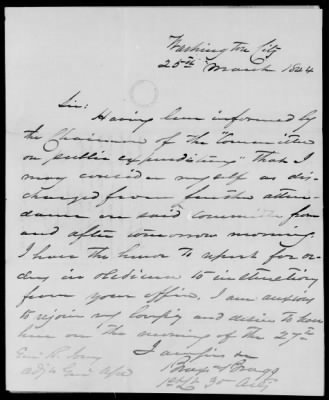 Washington City
25th March 1844
Sir:
Having been informed by
the Chairman of the "Committee
on public expenditures" that I
may consider myself as dis-
charged from further atten-
dance on said committee from
and after tomorrow morning.
I have the honor to report for or-
ders in obedience to instructions
from your office. I am anxious
to rejoin my company and desire to leave
here on the morning of the 27th
I am sir
Genl R. Jones
Adjt Genl
Bragg
1st Lt 3d Arty